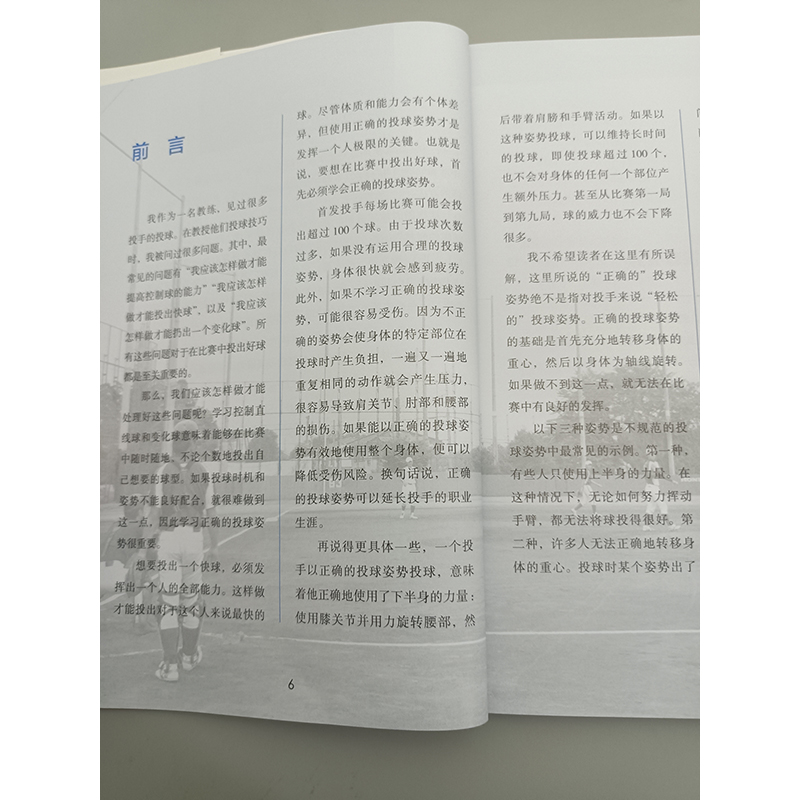 前言
我作为一名教练，见过很多
投手的投球。在教授他们投球技巧
时，我被问过很多问题。其中，最
常见的问题有“我应该怎样做才能
提高控制球的能力”“我应该怎样
做才能投出快球”、以及“我应该
怎样做才能扔出一个变化球”。所
有这些问题对于在比赛中投出好球
都是至关重要的。
那么，我们应该怎样做才能
处理好这些问题呢？学习控制直
线球和变化球意味着能够在比赛
中随时随地、不论个数地投出自
己想要的球型。如果投球时机和
姿势不能良好配合，就很难做到
这一点，因此学习正确的投球姿
势很重要。
想要投出一个快球，必须发
挥出一个人的全部能力。这样做
才能投出对于这个人来说最快的
球。尽管体质和能力会有个体差
异，但使用正确的投球姿势才是
发挥一个人极限的关键。也就是
说，要想在比赛中投出好球，首
先必须学会正确的投球姿势。
首发投手每场比赛可能会投
出超过 100 个球。由于投球次数
过多，如果没有运用合理的投球
姿势，身体很快就会感到疲劳。
此外，如果不学习正确的投球姿
势，可能很容易受伤。因为不正
确的姿势会使身体的特定部位在
投球时产生负担，一遍又一遍地
重复相同的动作就会产生压力，
很容易导致肩关节、肘部和腰部
的损伤。如果能以正确的投球姿
势有效地使用整个身体，便可以
降低受伤风险。换句话说，正确
的投球姿势可以延长投手的职业
生涯。
再说得更具体一些，一个投
手以正确的投球姿势投球，意味
着他正确地使用了下半身的力量：
使用膝关节并用力旋转腰部，然
6
后带着肩膀和手臂活动。如果以
这种姿势投球，可以维持长时间
的投球，即使投球超过 100 个，
也不会对身体的任何一个部位产
生额外压力。甚至从比赛第一局
到第九局，球的威力也不会下降
很多。
我不希望读者在这里有所误
解，这里所说的“正确的”投球
姿势绝不是指对投手来说“轻松
的”投球姿势。正确的投球姿势
的基础是首先充分地转移身体的
重心，然后以身体为轴线旋转。
如果做不到这一点，就无法在比
赛中有良好的发挥。
以下三种姿势是不规范的投
球姿势中最常见的示例。第一种，
有些人只使用上半身的力量。在
这种情况下，无论如何努力挥动
手臂，都无法将球投得很好。第
二种，许多人无法正确地转移身
体的重心。投球时某个姿势出了